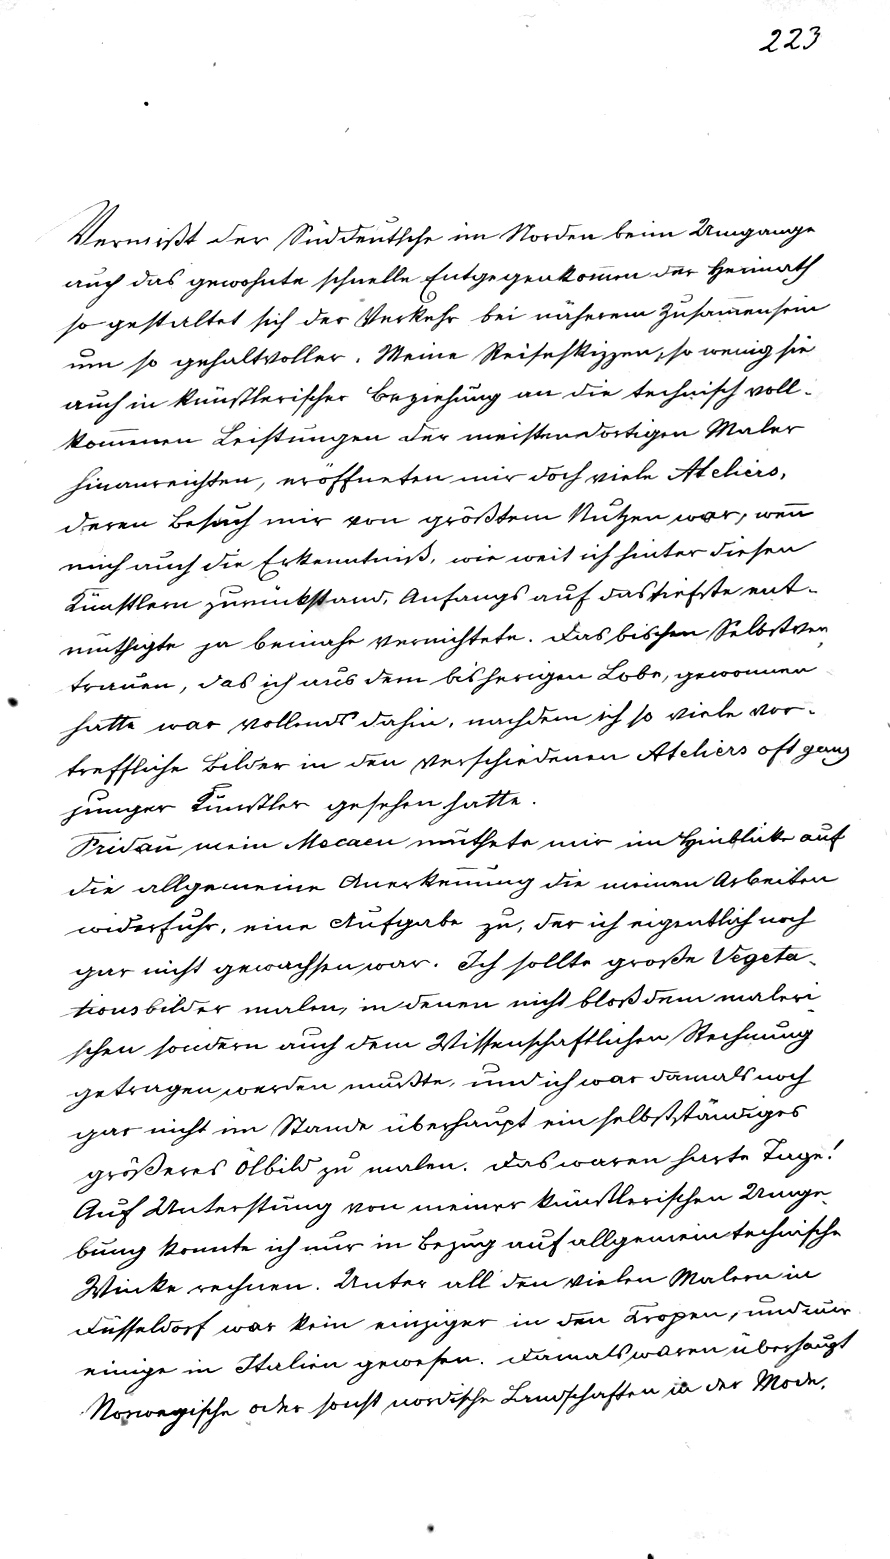 223
Vermißt der Süddeutsche im Norden beim Umgange
auch das gewohnte schnelle Entgegenkom̅en der Heimath
so gestaltet sich der Verkehr bei näherem Zusam̅ensein
um so gehaltvoller. Meine Reiseskizzen, so wenig sie
auch in künstlerischer Beziehung an die technisch voll-
kom̅enen Leistungen der meisten dortigen Maler
hinanreichten, eröffneten mir doch viele Ateliers,
deren Besuch mir von größtem Nutzen war, wen̅
mich auch die Erkenntniß, wie weit ich hinter diesen
Künstlern zurückstand, Anfangs auf das tiefste ent-
muthigte ja beinahe vernichtete. Das bischen Selbstver
trauen, das ich aus dem bisherigen Lobe, gewonnen
hatte war vollends dahin, nachdem ich so viele vor-
treffliche Bilder in den verschiedenen Ateliers oft ganz
junger Künstler gesehen hatte.
Fridau, mein Mecaen muthete mir im Hinblicke auf
die allgemeine Anerken̅ung die meinen Arbeiten
widerfuhr, eine Aufgabe zu, der ich eigentlich noch
gar nicht gewachsen war. Ich sollte große Vegeta-
tionsbilder malen, in denen nicht bloß dem maleri-
schen sondern auch dem Wissenschaftlichen Rechnung
getragen werden mußte, und ich war damals noch
gar nicht im Stande überhaupt ein selbstständiges
größeres Ölbild zu malen. Das waren harte Tage!
Auf Unterstung von meiner künstlerischen Umge-
bung konnte ich nur in Bezug auf allgemein technische
Winke rechnen. Unter all den vielen Malern in
Düsseldorf war kein einziger in den Tropen, und nur
einige in Italien gewesen. Damals waren überhaupt
Norwegische oder sonst nordische Landschaften in der Mode.